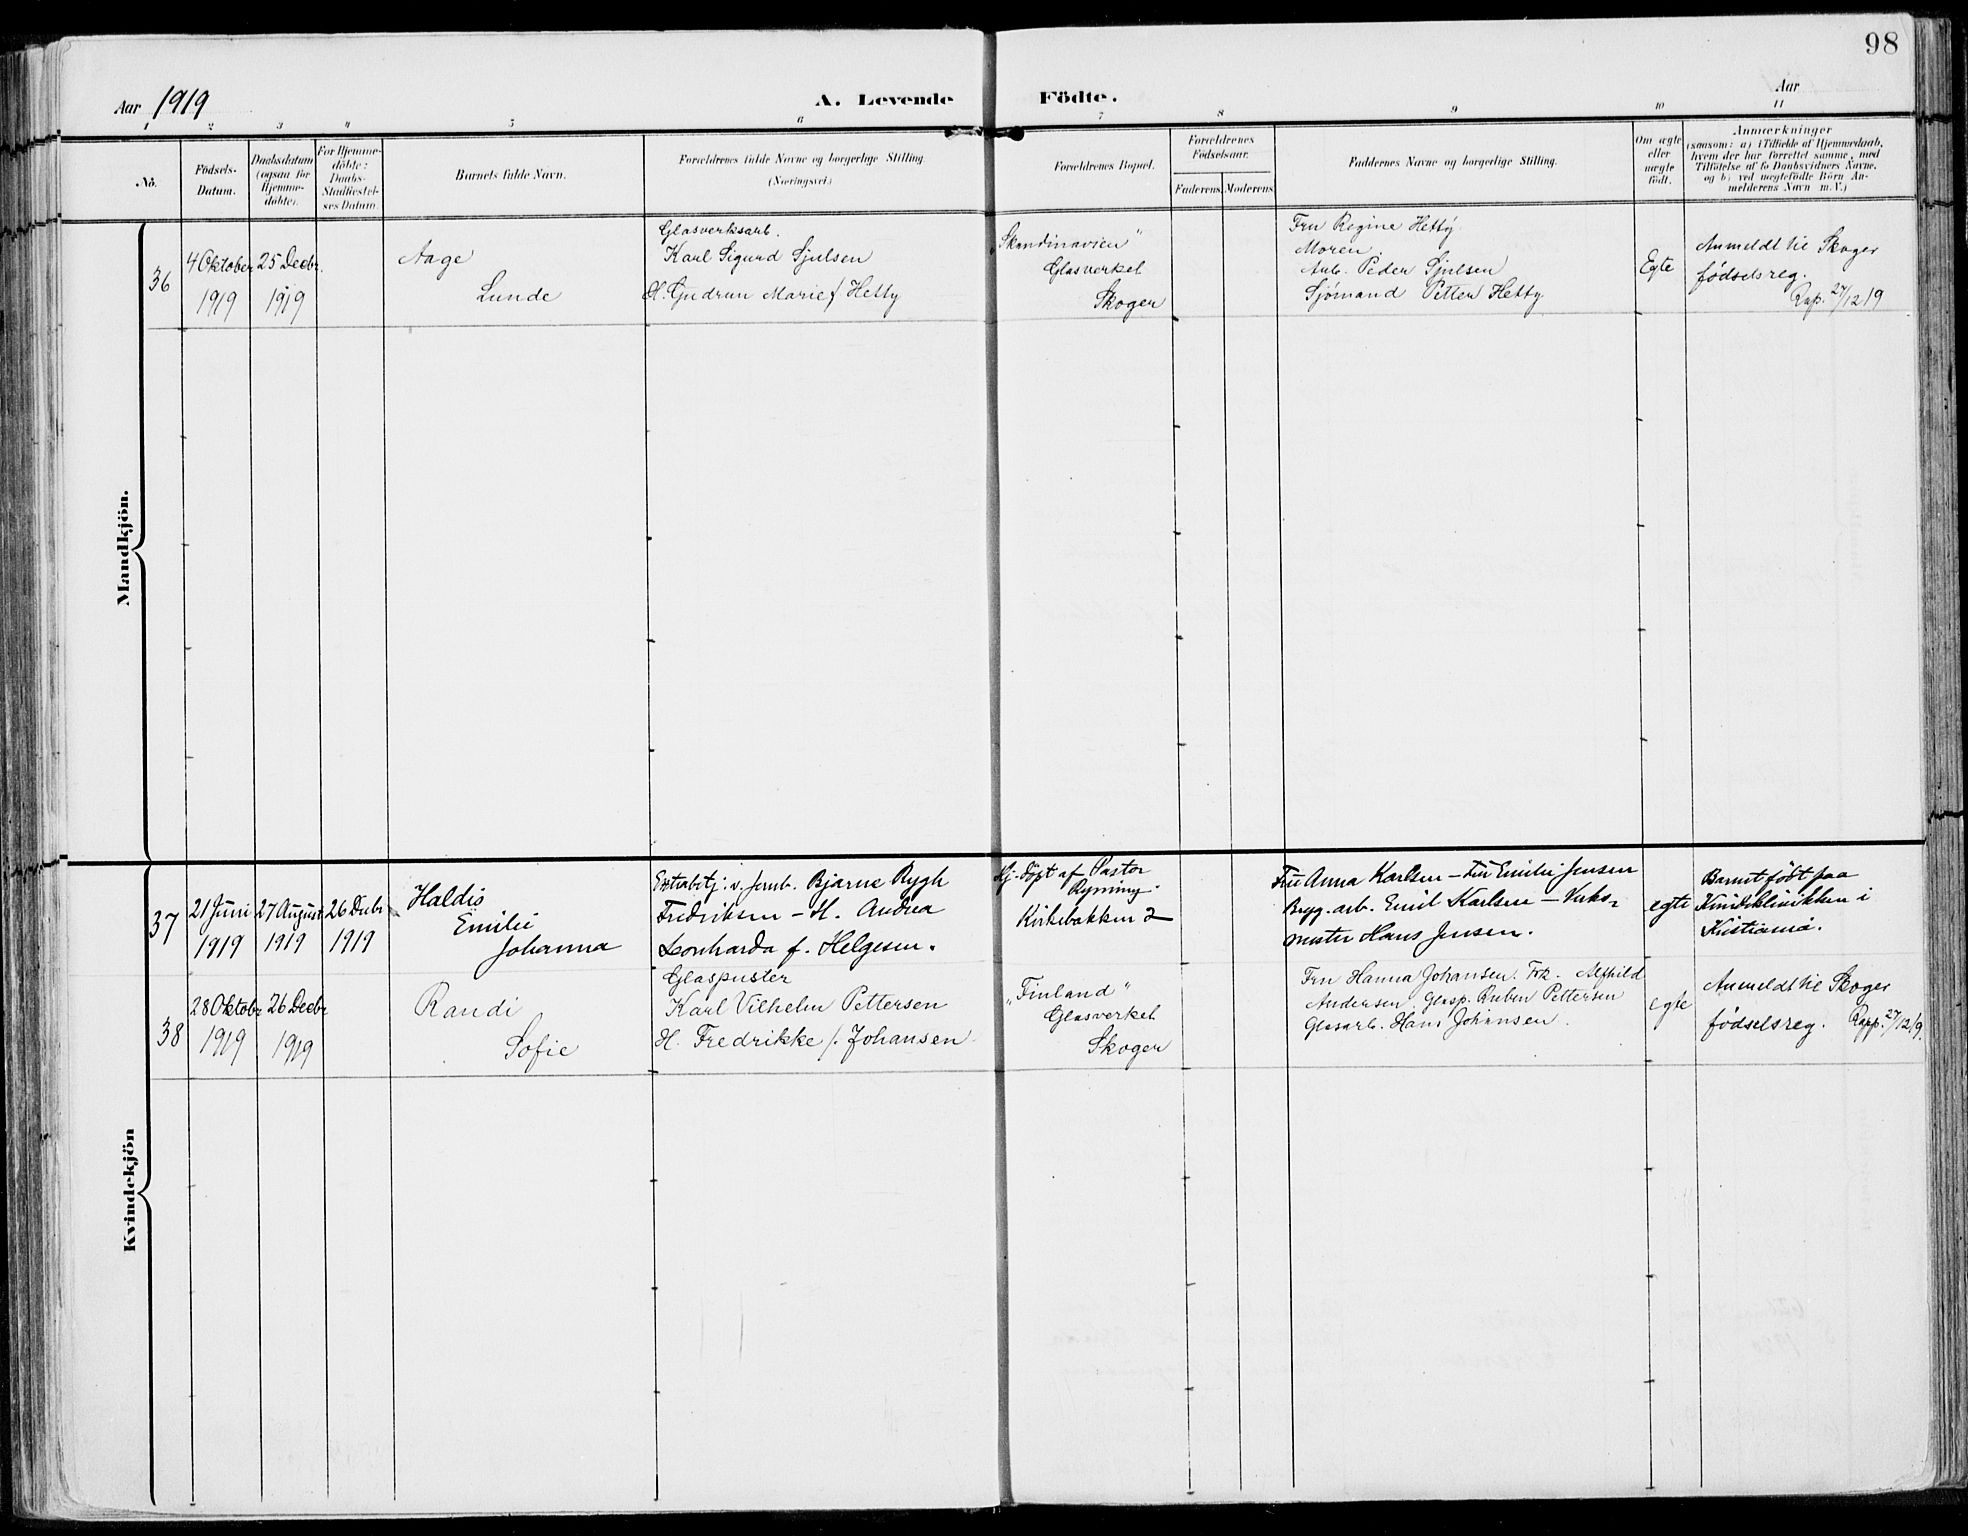 98
Aar 1919
A. Levende Födte.
Aar
1 2 3 4 5 6 7 8 9 10 11
No.
Födsels-
Datum.
Daabsdatum
(ogsaa for
Hjemme-
döbte).
For Hjemme-
döbte:
Daabs-
Stadfæstel-
ses Datum.
Barnets fulde Navn.
Forældrenes fulde Navne og borgerlige Stilling.
(Næringsvei.)
Forældrenes Bopæl.
Forældrenes
Födselsaar.
Faderens. Moderens.
Faddernes Navne og borgerlige Stilling.
Om ægte
eller
uægte
födt.
Anmærkninger
(saasom: a) i Tilfælde af Hjemmedaab,
hvem der har forrettet samme, med
Tilföielse af to Daabsvidners Navne.
og b) ved uægtefödte Börn An-
melderens Navn m. V.)
Mandkjön.
36
4 Oktober
1919
25 Decbr.
1919
Aage
Lunde
Glasverksarb.
Karl Sigurd Sjulsen
H. Gudrun Marie f. Hetty
"Skandinavien"
Glasverket
Skoger
Fru Regine Hetty
Moren
Arb. Peder Sjulsen
Sjömand Petter Hetty
Egte
Anmeldt til Skoger
fødselsreg.
Rap. 27/12 19
Kvindekjön
37
21 Juni
1919
27 August
1919
26 Decbr
1919
Haldis
Emilie
Johanna
Extrabetj. v. Jernb. Bjarne Rygh
Fredriksen – H. Andrea
Leonharda f. Helgesen.
Hj. døpt af Pastor
Ryning.
Kirkebakken 2
Fru Anna Karlsen – Fru Emilie Jensen
Bryg. arb. Emil Karlsen –
mester Hans Jensen.
egte
Barnet født paa
Kvindeklinikken i
Kristiania.
38
28 Oktobr
1919
26 Decbr
1919
Randi
Sofie
Glaspuster
Karl Vilhelm Pettersen
H. Fredrikke f. Johansen
"Finland"
Glasverket
Skoger
Fru Hanna Johansen. Frk. Alfhild
Andersen. Glasp. Ruben Pettersen
Glasarb. Hans Johansen.
egte
Anmeldt til Skoger
fødselsreg. Rapp. 27/12 19.